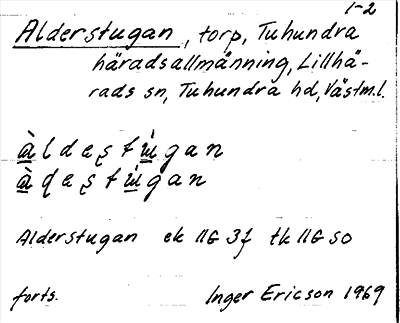 1-2
Alderstugan, torp, Tuhundra
häradsallmänning, Lillhä-
rads sn, Tuhundra hd, Västm.l.
àldestùgan
àdestùgan
Alderstugan ek 11G 3f tk 11G SO
forts. Inger Ericson 1969